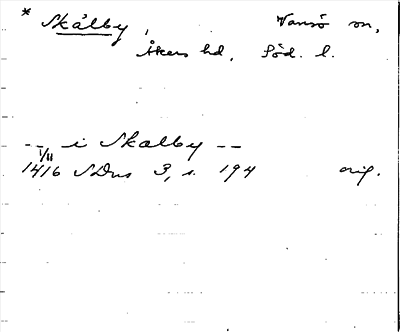 * Skälby, Vansö sn,
Åkers hd, Söd. l.
-- i Skalby --
1/11
1416 SDns 3, s. 194 orig.